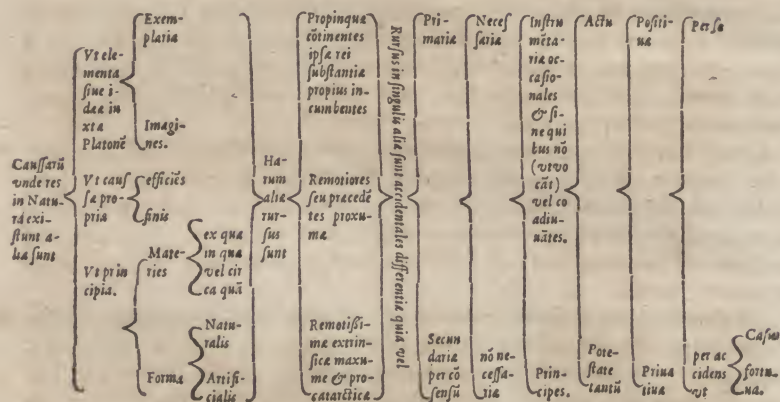 Cauſſarũ
vnde res
in Natu-
rá exi-
ſtunt a-
lia ſunt
Vt ele-
menta
ſiue i-
dææ iu
xta
Platonẽ
Exem-
plaria
Imagi-
nes.
Vt cauſ
ſæ pro-
priæ
efficiẽs
finis
Vt prin
cipia.
Mate-
ries
ex qua
in qua
vel cir
ca quã
Forma
Natu-
ralis
Artifi-
cialis
Ha-
rum
aliæ
rur-
ſus
ſunt
Propinquæ
cõtinentes
ipſæ rei
ſubſtantiæ
propius in-
cumbentes
Remotiores
ſeu præcedẽ
tes proxu-
mæ
Remotiſſi-
mæ extrin-
ſicæ maxu-
me & pro-
catarcticæ
Rurſus in ſingulis aliæ ſunt accidentales differentiæ quia vel
Pri-
mariæ
Secun
dariæ
per cõ
ſenſũ
Neceſ
ſariæ
nõ ne-
ceſſa-
riæ
Inſtru
mẽta-
riæ oc-
caſio-
nales
& ſi-
ne qui
bus nõ
(vt vo
cãt)
vel co
adiu-
uãtes.
Prin-
cipes.
Actu
Pote-
ſtate
tantũ
Poſiti-
uæ
Priua
tiuæ
Per ſe
per ac
cidens
vt
Caſus
fortu-
na.